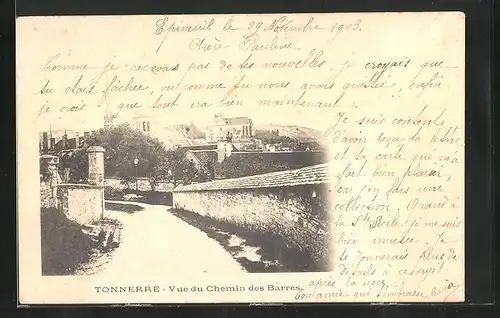 Epineuil le 29 Novembre 1903.
Chère Pauline
Comme je recevais pas de tes nouvelles, je croyais que
tu étais fâchée, vu comme tu nous avais quittée, enfin
je crois que tout ira bien maintenant.
Je suis contente
d'avoir reçu ta lettre
et ta carte que m'a
fait bien plaisir,
car j'en fais une
collection. Quand à
la Ste Cécile je me suis
bien amusée. Je
te donnerais plus de
détails à ce sujet
après la noce
ton amie qui t'embrasse
TONNERRE - Vue du Chemin des Barres.